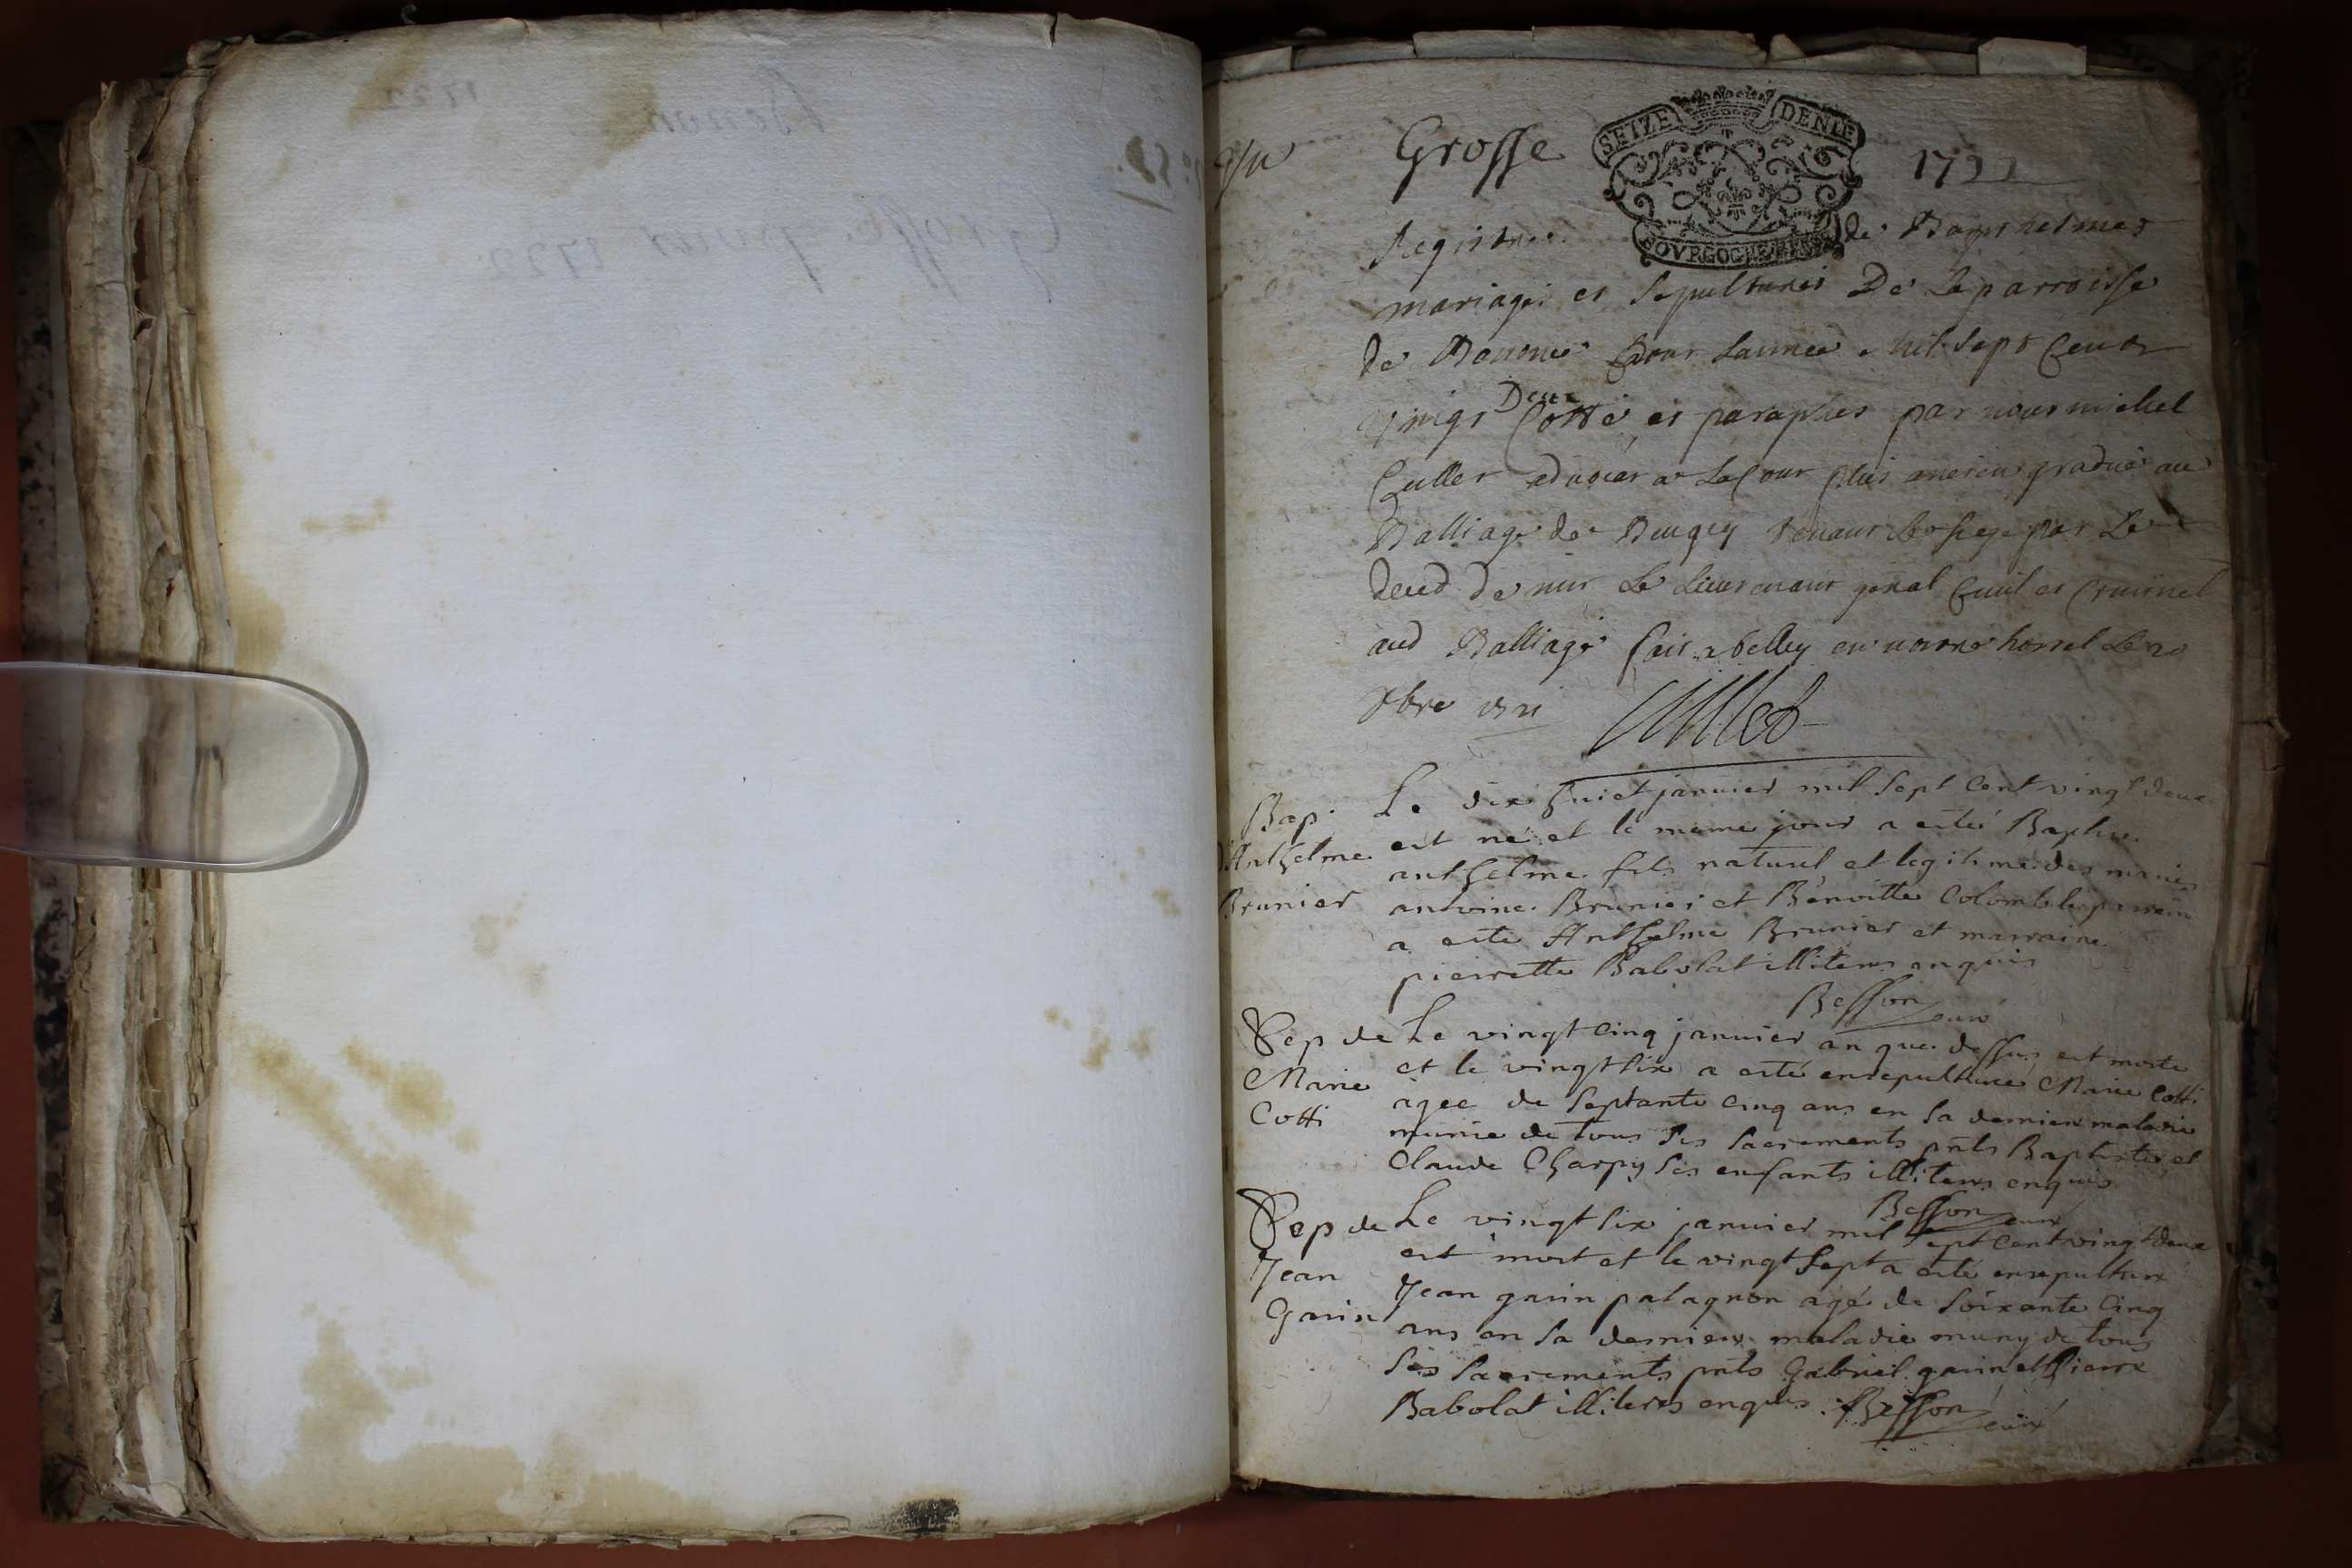 Grosse
SEIZE DENIE
BOVRGOGNE
1722
Registre de Baptesmes
mariages et sepultures De la parroisse
de Bonone pour lannee mil sept Cent
vingt Deux Cotté et paraphes par nous michel
Cullet aduocat a la Cour plus ancien gradué au
Balliage de Beugey tenant le siege par le
deced de mr le Lieutenant gnral Ciuil et Criminel
aud Balliage fait a belley en notre hostel le 20
xbre 1721
Cullet
Bap.
d'Anthelme
Brunier
Le dix huict janvier mil sept cent vingt deux
est né et le meme jour a esté Baptisé
anthelme fils naturel et legitime des mariés
antoine Brunier et Benoitte Colomb le parrein
a esté Anthelme Brunier et marraine
pierrette Babolat illiteres enquis
Besson curé
Sep de
Marie
Cotti
Le vingt cinq janvier an que dessus est morte
et le vingt six a esté ensepulturée Marie Cotti
agée de septante cinq ans en sa derniere maladie
munie de tous ses sacrements pnts Baptiste et
Claude Charpy ses enfants illiteres enquis
Besson curé
Sep de
Jean
Garin
Le vingt six janvier mil sept cent vingt deux
est mort et le vingt sept a esté ensepulturé
Jean garin patagnon agé de soixante cinq
ans en sa derniere maladie muny de tous
ses sacrements pnts Gabriel garin et Pierre
Babolat illiteres enquis Besson curé